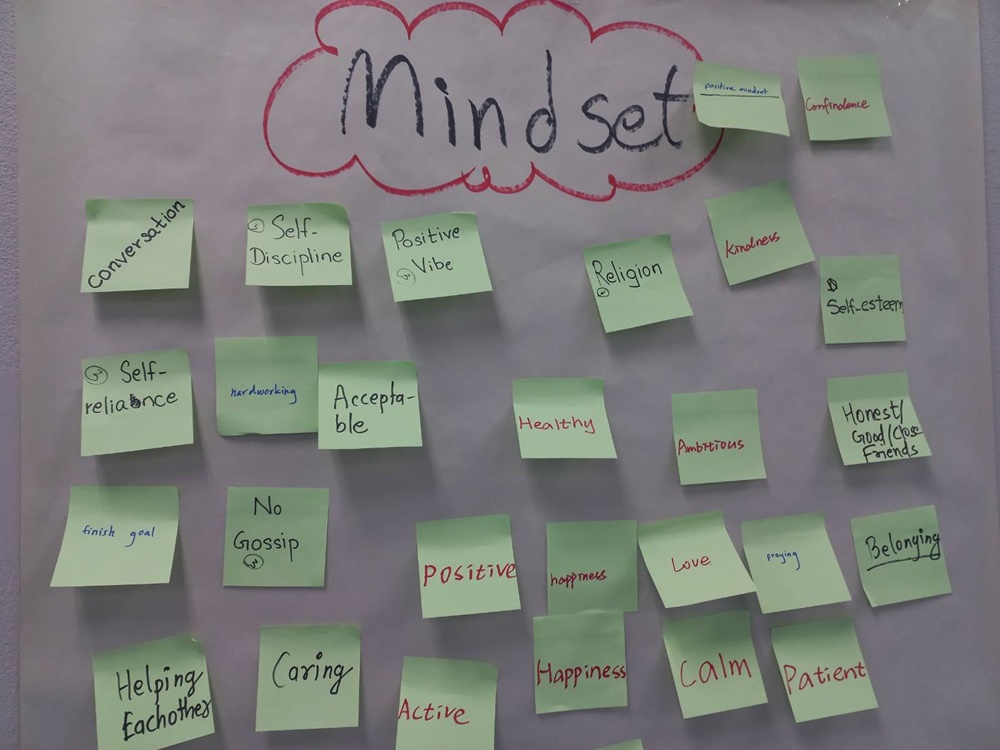 Mindset
positive mindset
Confindence
Conversation
Self-
Discipline
Positive
Vibe
Religion
Kindness
Self-esteem
Self-
reliance
hardworking
Accepta-
ble
Healthy
Ambitious
Honest/
Good/Close
Friends
finish goal
No
Gossip
Positive
happiness
Love
praying
Belonging
Helping
Eachother
Caring
Active
Happiness
Calm
Patient